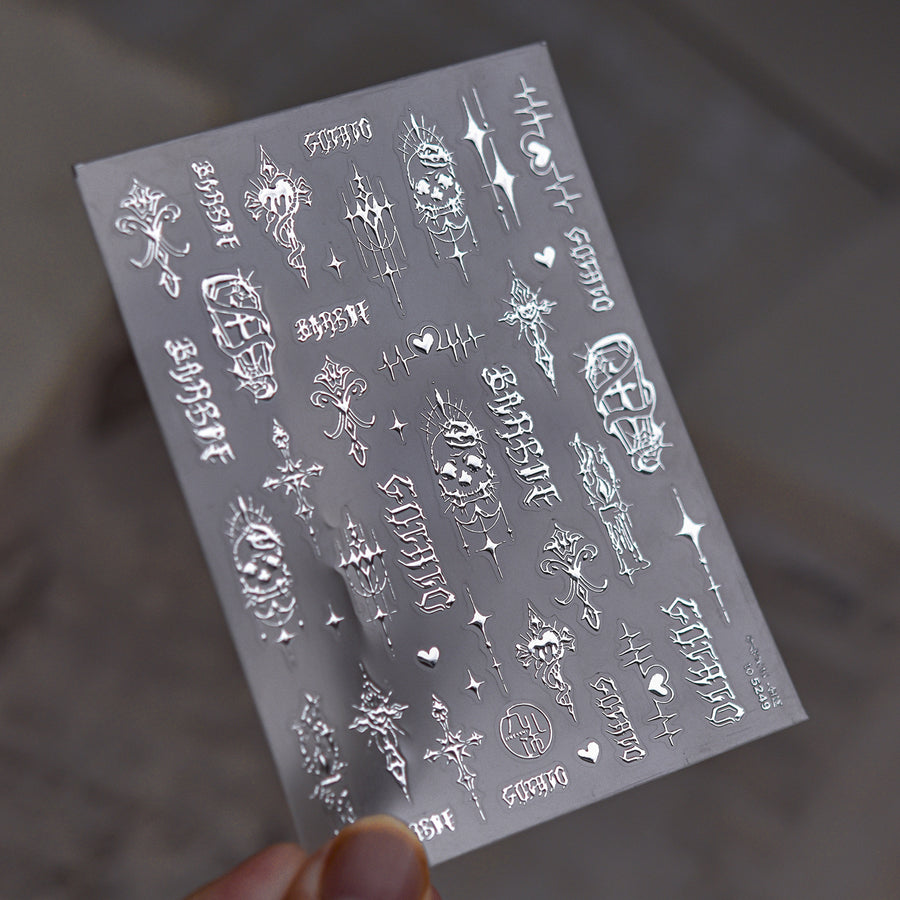 GOTHIC
BARBIE
GOTHIC
BARBIE
BARBIE
BARBIE
GOTHIC
GOTHIC
TO 5249
GOTHIC
GOTHIC